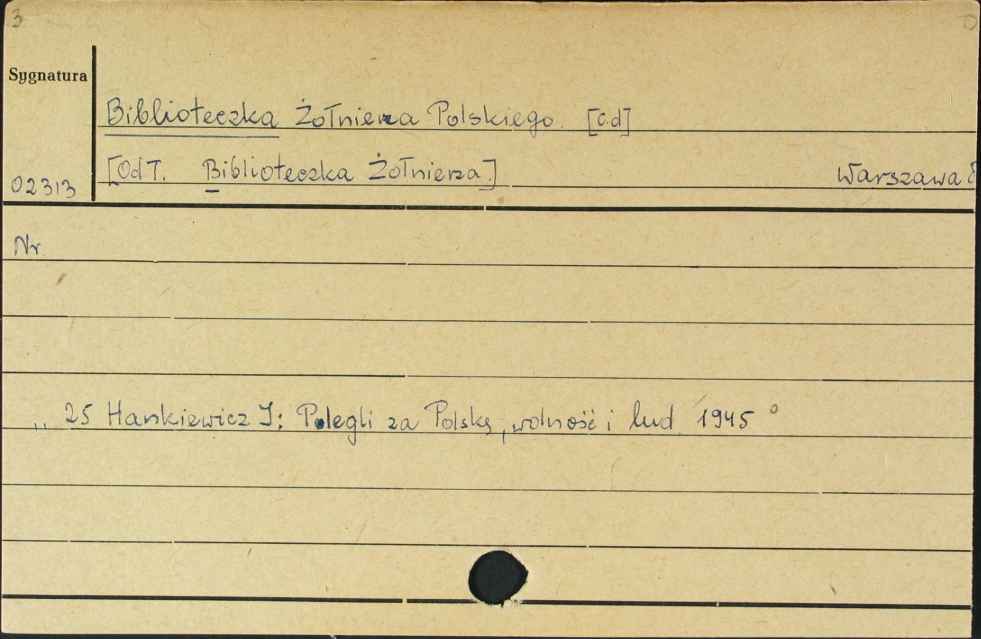 3
Sygnatura
Biblioteczka Żołnierza Polskiego. [C.d]
[Od T. Biblioteczka Żołnierza.]
02313
Warszawa
Nr
„ 25 Hankiewicz J: Polegli za Polskę, wolność i lud. 1945 °